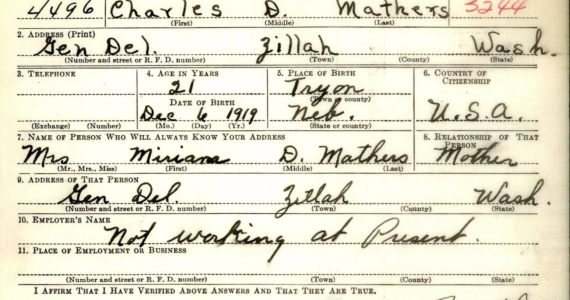 4496 Charles D. Mathers 3244
(First) (Middle) (Last)
2. Address (Print)
Gen Del. Zillah Wash.
(Number and street or R. F. D. number) (Town) (County) (State)
3. Telephone 4. Age in Years 5. Place of Birth 6. Country of Citizenship
21 Tryon
(Town or county)
Date of Birth
Dec 6 1919 Neb. U.S.A.
(Exchange) (Number) (Mo.) (Day) (Yr.) (State or country)
7. Name of Person Who Will Always Know Your Address 8. Relationship of That Person
Mrs Miriam D. Mathers Mother
(Mr., Mrs., Miss) (First) (Middle) (Last)
9. Address of That Person
Gen Del. Zillah Wash.
(Number and street or R. F. D. number) (Town) (County) (State)
10. Employer's Name
Not working at Present.
11. Place of Employment or Business
(Number and street or R. F. D. number) (Town) (County) (State)
I Affirm That I Have Verified Above Answers And That They Are True.